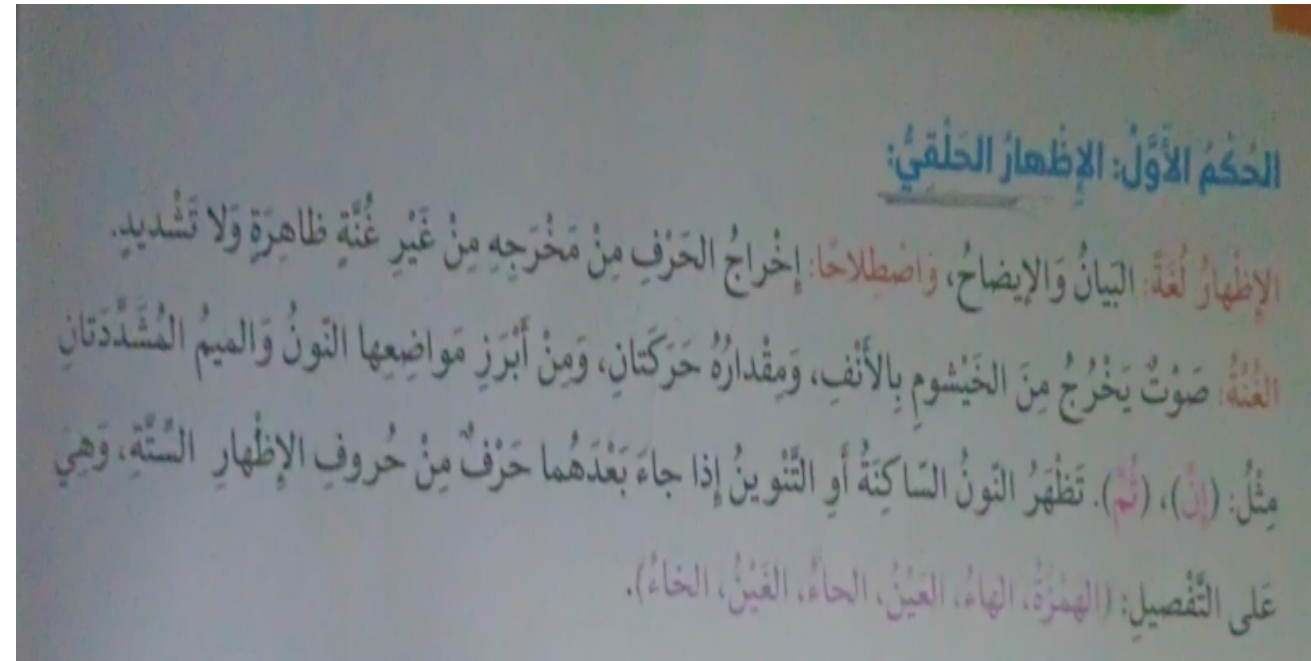 الحُكْمُ الأَوَّلُ: الإِظْهارُ الحَلْقيُّ:
الإِظْهارُ لُغَةً: البَيانُ وَالإيضاحُ، وَاصْطِلاحًا: إِخْراجُ الحَرْفِ مِنْ مَخْرَجِهِ مِنْ غَيْرِ غُنَّةٍ ظاهِرَةٍ وَلا تَشْديدٍ.
الغُنَّةُ: صَوْتٌ يَخْرُجُ مِنَ الخَيْشومِ بِالأَنْفِ، وَمِقْدارُهُ حَرَكَتانِ، وَمِنْ أَبْرَزِ مَواضِعِها النّونُ وَالميمُ المُشَدَّدَتانِ
مِثْلُ: (إِنَّ)، (ثُمَّ). تَظْهَرُ النّونُ السّاكِنَةُ أَوِ التَّنْوينُ إِذا جاءَ بَعْدَهُما حَرْفٌ مِنْ حُروفِ الإِظْهارِ السِّتَّةِ، وَهِيَ
عَلى التَّفْصيلِ: (الهَمْزَةُ، الهاءُ، العَيْنُ، الحاءُ، الغَيْنُ، الخاءُ).